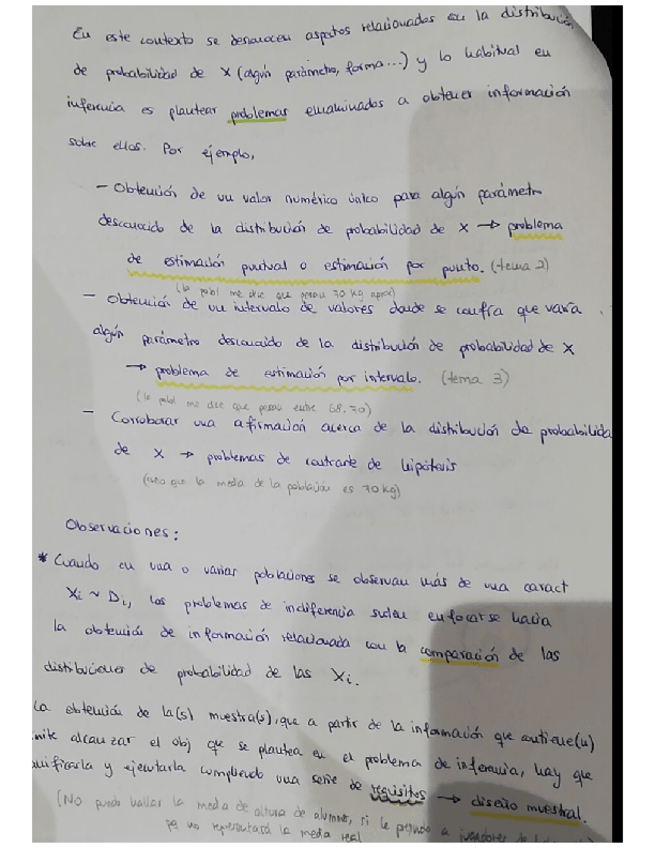 En este contexto se desconocen aspectos relacionados con la distribución
de probabilidad de X (algún parámetro, forma...) y lo habitual en
inferencia es plantear problemas encaminados a obtener información
sobre ellos. Por ejemplo,
- Obtención de un valor numérico único para algún parámetro
desconocido de la distribución de probabilidad de X → problema
de estimación puntual o estimación por punto. (tema 2)
(la pobl me dice que pesan 70 kg aprox)
- Obtención de un intervalo de valores donde se confía que varía
algún parámetro desconocido de la distribución de probabilidad de X
→ problema de estimación por intervalo. (tema 3)
(la pobl me dice que pesan entre 68-70)
- Corroborar una afirmación acerca de la distribución de probabilida
de X → problemas de contraste de hipótesis
(creo que la media de la población es 70 kg)
Observaciones:
* Cuando en una o varias poblaciones se observan más de una caract
Xi ~ Di, los problemas de indiferencia suelen enfocarse hacia
la obtención de información relacionada con la comparación de las
distribuciones de probabilidad de las Xi.
La obtención de la(s) muestra(s), que a partir de la información que contiene(n)
mite alcanzar el obj que se plantea en el problema de inferencia, hay que
nificarla y ejecutarla cumpliendo una serie de requisitos → diseño muestral.
(No puedo hallar la media de altura de alumnos, si le pregunto a jugadores de
pq no representará la media real